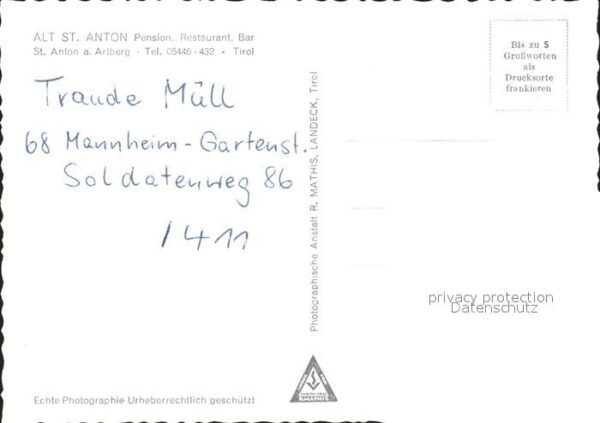 ALT ST. ANTON Pension, Restaurant, Bar
St. Anton a. Arlberg · Tel. 05446-432 · Tirol
Traude Müll
68 Mannheim-Gartenst.
Soldatenweg 86
/411
Photographische Anstalt R. MATHIS, LANDECK, Tirol
Bis zu 5
Grußworten
als
Drucksorte
frankieren
privacy protection
Datenschutz
Echte Photographie Urheberrechtlich geschützt
R.MATHIS